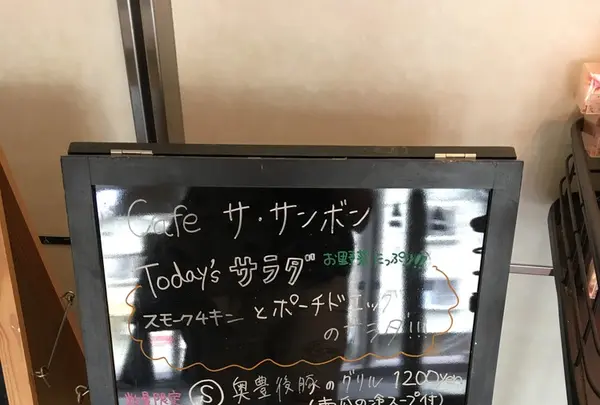 Cafe サ・サンボン
Today's サラダ お野菜たっぷり!!
スモーク4キン とポーチドエッグ
のサラダ!!!
数量限定 Ⓢ 奥豊後豚のグリル 1200yen
の冷スープ付)